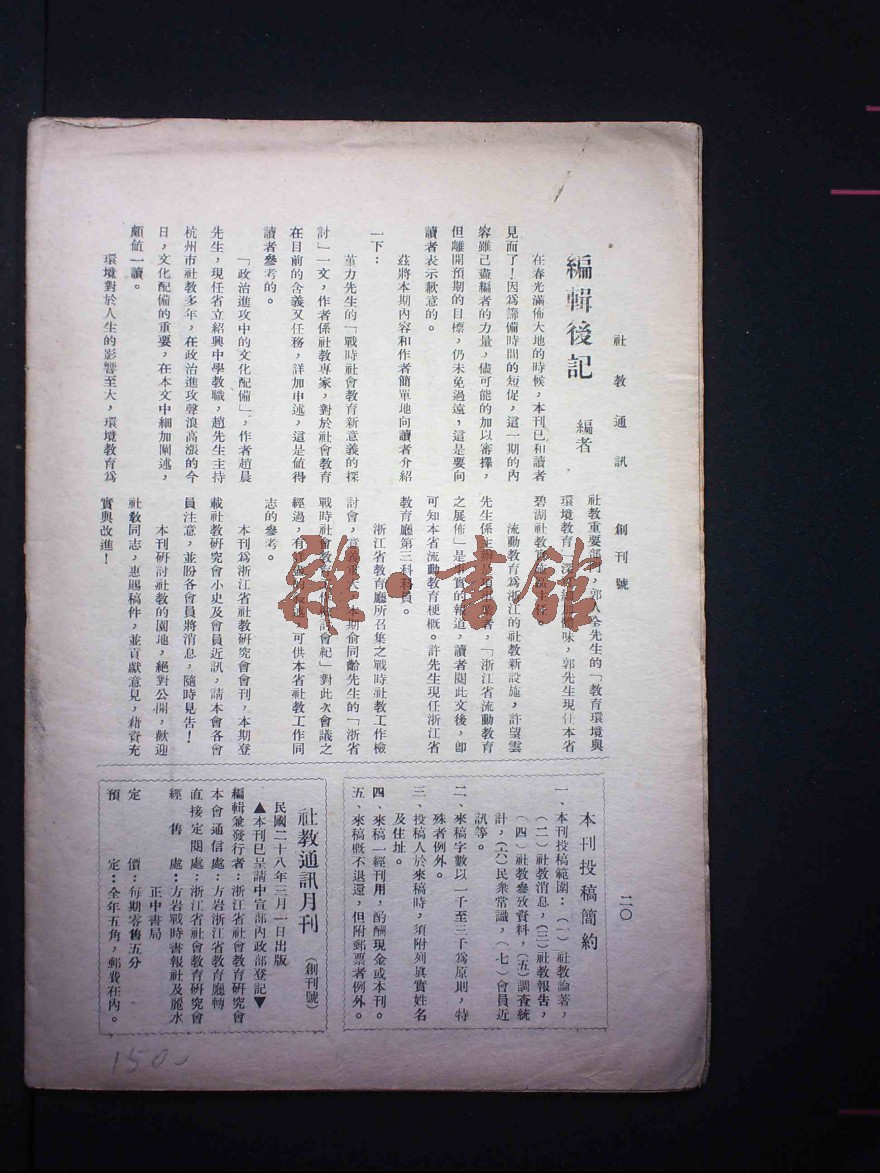 社教通訊　創刊號　二〇
編輯後記　編者
在春光滿佈大地的時候，本刊已和讀者
見面了！因爲籌備時間的短促，這一期的內
容雖已盡編者的力量，儘可能的加以審擇，
但離開預期的目標，仍未免過遠，這是要向
讀者表示歉意的。
茲將本期內容和作者簡單地向讀者介紹
一下：
堇力先生的「戰時社會敎育新意義的探
討」一文，作者係社敎專家，對於社會敎育
在目前的含義又任務，詳加申述，這是値得
讀者參考的。
「政治進攻中的文化配備」，作者趙晨
先生，現任省立紹興中學敎職，趙先生主持
杭州市社敎多年，在政治進攻聲浪高漲的今
日，文化配備的重要，在本文中細加闡述，
頗値一讀。
環境對於人生的影響至大，環境敎育爲
社敎重要部門，郭人全先生的「敎育環境與
環境敎育」深
味，郭先生現任本省
碧湖社敎
流動敎育爲浙江的社敎新設施，許望雲
先生係主辦是項
者，「浙江省流動敎育
之展佈」是事實的報道，讀者閱此文後，卽
可知本省流動敎育梗槪。許先生現任浙江省
敎育廳第三科科員。
浙江省敎育廳所召集之戰時社敎工作檢
討會，意義重大，本期俞同齡先生的「浙省
戰時社會敎育工作檢討會紀」對此次會議之
經過，有
，可供本省社敎工作同
志的參考。
本刊爲浙江省社敎硏究會會刊，本期登
載社敎硏究會小史及會員近訊，請本會各會
員注意，並盼各會員將消息，隨時見吿！
本刊硏討社敎的園地，絕對公開，歡迎
社敎同志，惠賜稿件，並貢獻意見，藉資充
實與改進！
本刊投稿簡約
一、本刊投稿範圍：（一）社敎論著，
（二）社敎消息，（三）社敎報吿，
（四）社敎參攷資料，（五）調查統
計，（六）民衆常識，（七）會員近
訊等。
二、來稿字數以一千至三千爲原則，特
殊者例外。
三、投稿人於來稿時，須附列眞實姓名
及住址。
四、來稿一經刊用，酌酬現金或本刊。
五、來稿槪不退還，但附郵票者例外。
社敎通訊月刊（創刊號）
民國二十八年三月一日出版
▲本刊已呈請中宣部內政部登記▼
編輯兼發行者：浙江省社會敎育硏究會
本會通信處：方岩浙江省敎育廳轉
直接定閱處：浙江省社會敎育硏究會
經售處：方岩戰時書報社及麗水
正中書局
定價：每期零售五分
預定：全年五角，郵費在內。
雜·書館
150